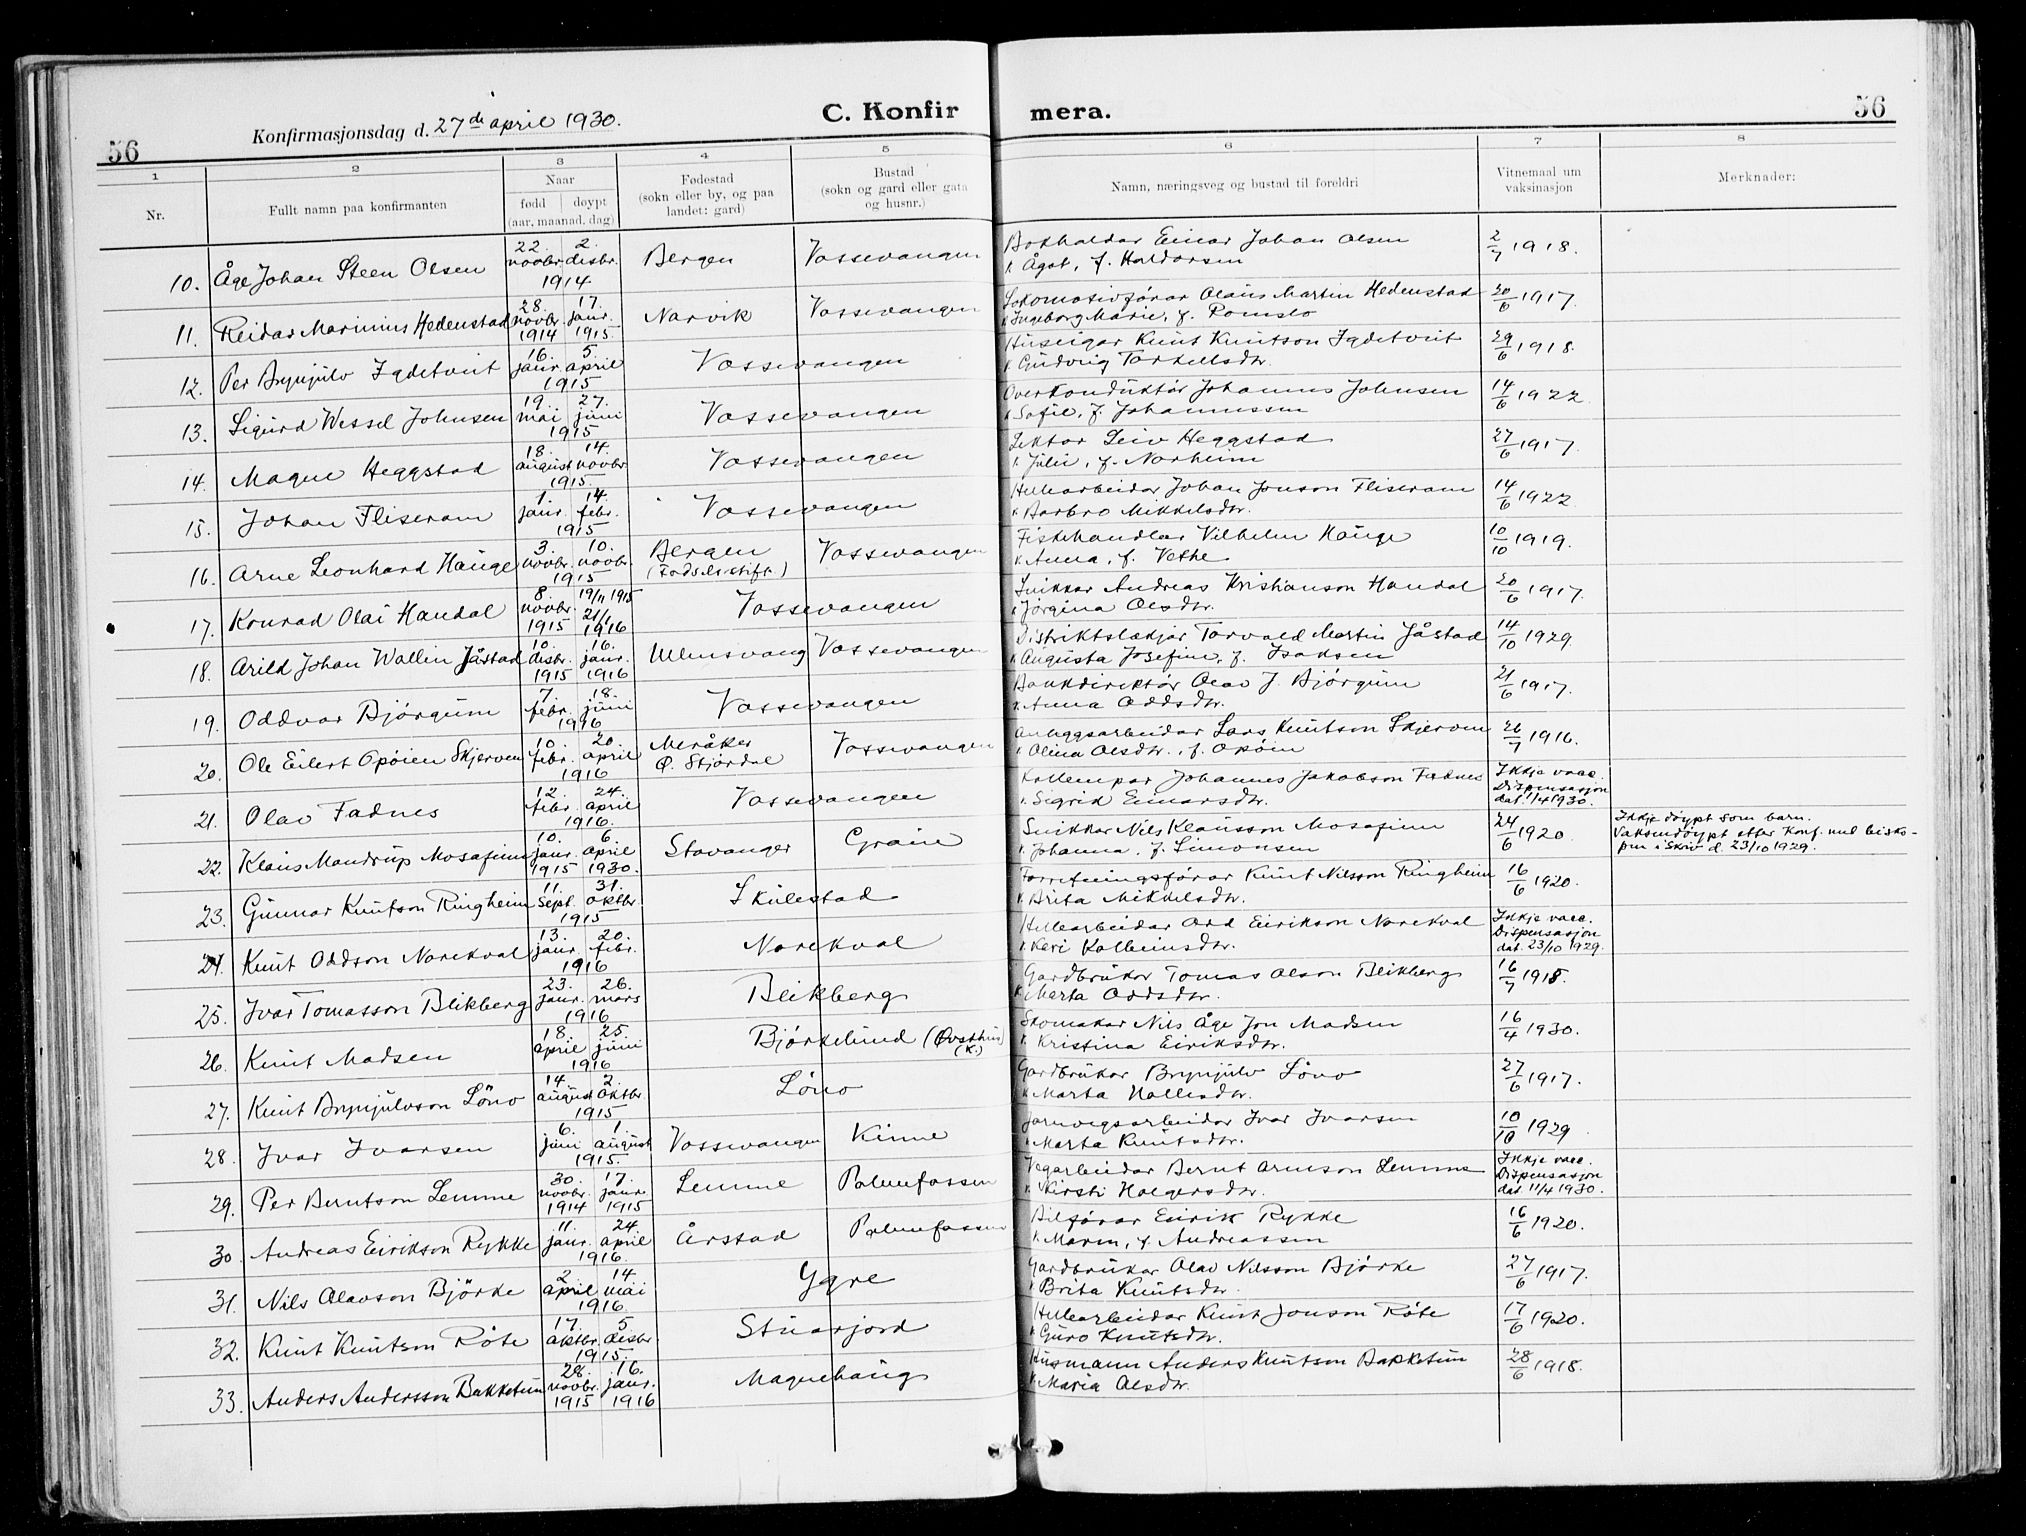 56
Konfirmasjonsdag d. 27de april 1930.
C. Konfir
mera.
56
1 2 3 4 5 6 7 8
Nr.
Fullt namn paa konfirmanten
Naar
fødd døypt
(aar, maanad, dag)
Fødestad
(sokn eller by, og paa
landet: gard)
Bustad
(sokn og gard eller gata
og husnr.)
Namn, næringsveg og bustad til foreldri
Vitnemaal um
vaksinasjon
Merknader:
10. Åge Johan Steen Olsen 22. novbr. 2. disbr. 1914 Bergen Vossevangen Bokhaldar Einar Johan Olsen 2/7 1918.
k. Ågot, f. Haldorsen
11. Reidar Marinius Hedenstad 28. novbr. 1914 17. janr. 1915 Narvik Vossevangen Lokomotivførar Olaus Martin Hedenstad 20/6 1917.
k. Ingeborg Marie, f. Romslo
12. Per Brynjulv Igdetveit 16. janr. 5. april 1915 Vossevangen Huseigar Knut Knutson Igdetveit 29/6 1918.
k. Gudvig Torkellsdtr.
13. Sigurd Wessel Johnsen 19. mai 27. juni 1915 Vossevangen Overkonduktør Johannes Johnsen 14/6 1922.
k. Sofie, f. Johannessen
14. Magne Heggstad 18. august 14. novbr. 1915. Vossevangen Lektor Leiv Heggstad 27/6 1917.
k. Julie, f. Norheim
15. Johan Fliseram 1. janr. 14. febr. 1915 Vossevangen Hellearbeidar Johan Jonson Fliseram 14/6 1922
k. Barbro Mikkelsdtr.
16. Arne Leonhard Hauge 3. novbr. 10. novbr. 1915 Bergen (Fødselsstift.) Vossevangen Fiskehandlar Vilhelm Hauge 10/10 1919.
k. Anna, f. Vethe
17. Konrad Olai Handal 8. novbr. 1915 19/11 1915 21/1 1916 Vossevangen Snikkar Andreas Kristianson Handal 20/6 1917.
k. Jørgina Olsdtr.
18. Arild Johan Wallin Jåstad 10. disbr. 1915 16. janr. 1916 Ullensvang Vossevangen Distriktslækjar Torvald Martin Jåstad 14/10 1929.
k. Augusta Josefine, f. Isaksen
19. Oddvar Bjørgum 7. febr. 18. juni 1916 Vossevangen Bankdirektør Olav J. Bjørgum 21/6 1917.
k. Anna Oddsdtr.
20. Ole Eilert Opøien Skjerven 10. febr. 20. april 1916 Meråker Ø. Stjørdal Vossevangen Anleggsarbeidar Lars Knutson Skjerven 26/7 1916.
k. Olina Olsdtr., f. Opøien
21. Olav Fadnes 12. febr. 24. april 1916. Vossevangen Kollempar Johannes Jakobson Fadnes Ikkje vacc.
k. Sigrid Einarsdtr. Dispensasjon
dat. 1/4 1930.
22. Klaus Mandrup Mosafinn 10. janr. 1915 6. april 1930. Stavanger Graue Snikkar Nils Klausson Mosafinn 24/6 1920. Ikkje døypt som barn.
k. Johanna, f. Simonsen Vaksendøypt etter Konf. med bisko-
pen i Skriv d. 23/10 1929.
23. Gunnar Knutson Ringheim 11. sept. 31. oktbr. 1915 Skulestad Forretningsførar Knut Nilsson Ringheim 16/6 1920.
k. Brita Mikkelsdtr.
24. Knut Oddson Norekval 13. janr. 20. febr. 1916 Norekval Hellearbeidar Odd Eirikson Norekval Ikkje vacc.
k. Kari Kolbeinsdtr. Dispensasjon
dat. 23/10 1929.
25. Ivar Tomasson Blikberg 23. janr. 26. mars 1916 Blikberg Gardbrukar Tomas Olson Blikberg 16/7 1918.
k. Marta Oddsdtr.
26. Knut Madsen 18. april 25. juni 1916 Bjørkelund (Øvsthus) (k.) Skomakar Nils Åge Jon Madsen 16/4 1930.
k. Kristina Eiriksdtr.
27. Knut Brynjulvson Løno 14. august 2. oktbr. 1915 Løno Gardbrukar Brynjulv Løno 27/6 1917.
k. Marta Hallesdtr.
28. Ivar Ivarsen 6. juni 1. august 1915. Vossevangen Kinne Jarnvegsarbeidar Ivar Ivarsen 10/10 1929
k. Marta Knutsdtr.
29. Per Berntson Lemme 30. novbr. 1914 17. janr. 1915 Lemme Palmafossen Vegarbeidar Bernt Arneson Lemme Ikkje vacc.
k. Kirsti Holgersdtr. Dispensasjon
dat. 11/4 1930.
30. Andreas Eirikson Rykke 11. janr. 24. april 1916. Årstad Palmafossen Bilførar Eirik Rykke 16/6 1920.
k. Maren, f. Andreassen
31. Nils Olavson Björke 2. april 14 mai 1916. Ygre Gardbrukar Olav Nilsson Bjørke 27/6 1917.
k. Brita Knutsdtr.
32. Knut Knutson Røte 17. oktbr. 5. disbr. 1915. Stuarjord Hellearbeidar Knut Jonson Røte 17/6 1920.
k. Guro Knutsdtr.
33. Anders Andersson Bakketun 28. novbr. 1915 16. janr. 1916 Magnehaug Husmann Anders Knutson Bakketun 28/6 1918.
k. Maria Olsdtr.